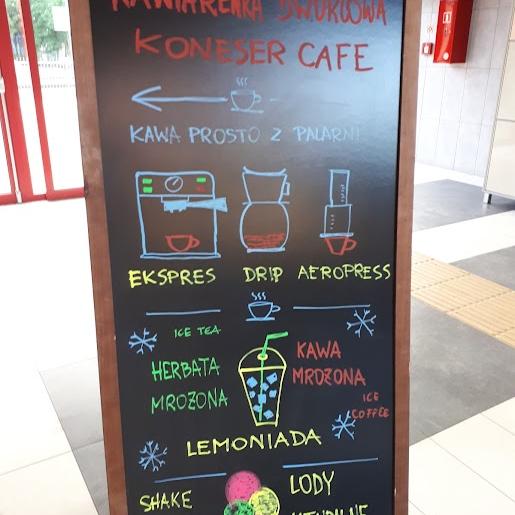 KAWIARENKA DWORCOWA
KONESER CAFE
KAWA PROSTO Z PALARNI
EKSPRES DRIP AEROPRESS
ICE TEA
HERBATA
MROŻONA
KAWA
MROŻONA
ICE
COFFEE
LEMONIADA
SHAKE
LODY